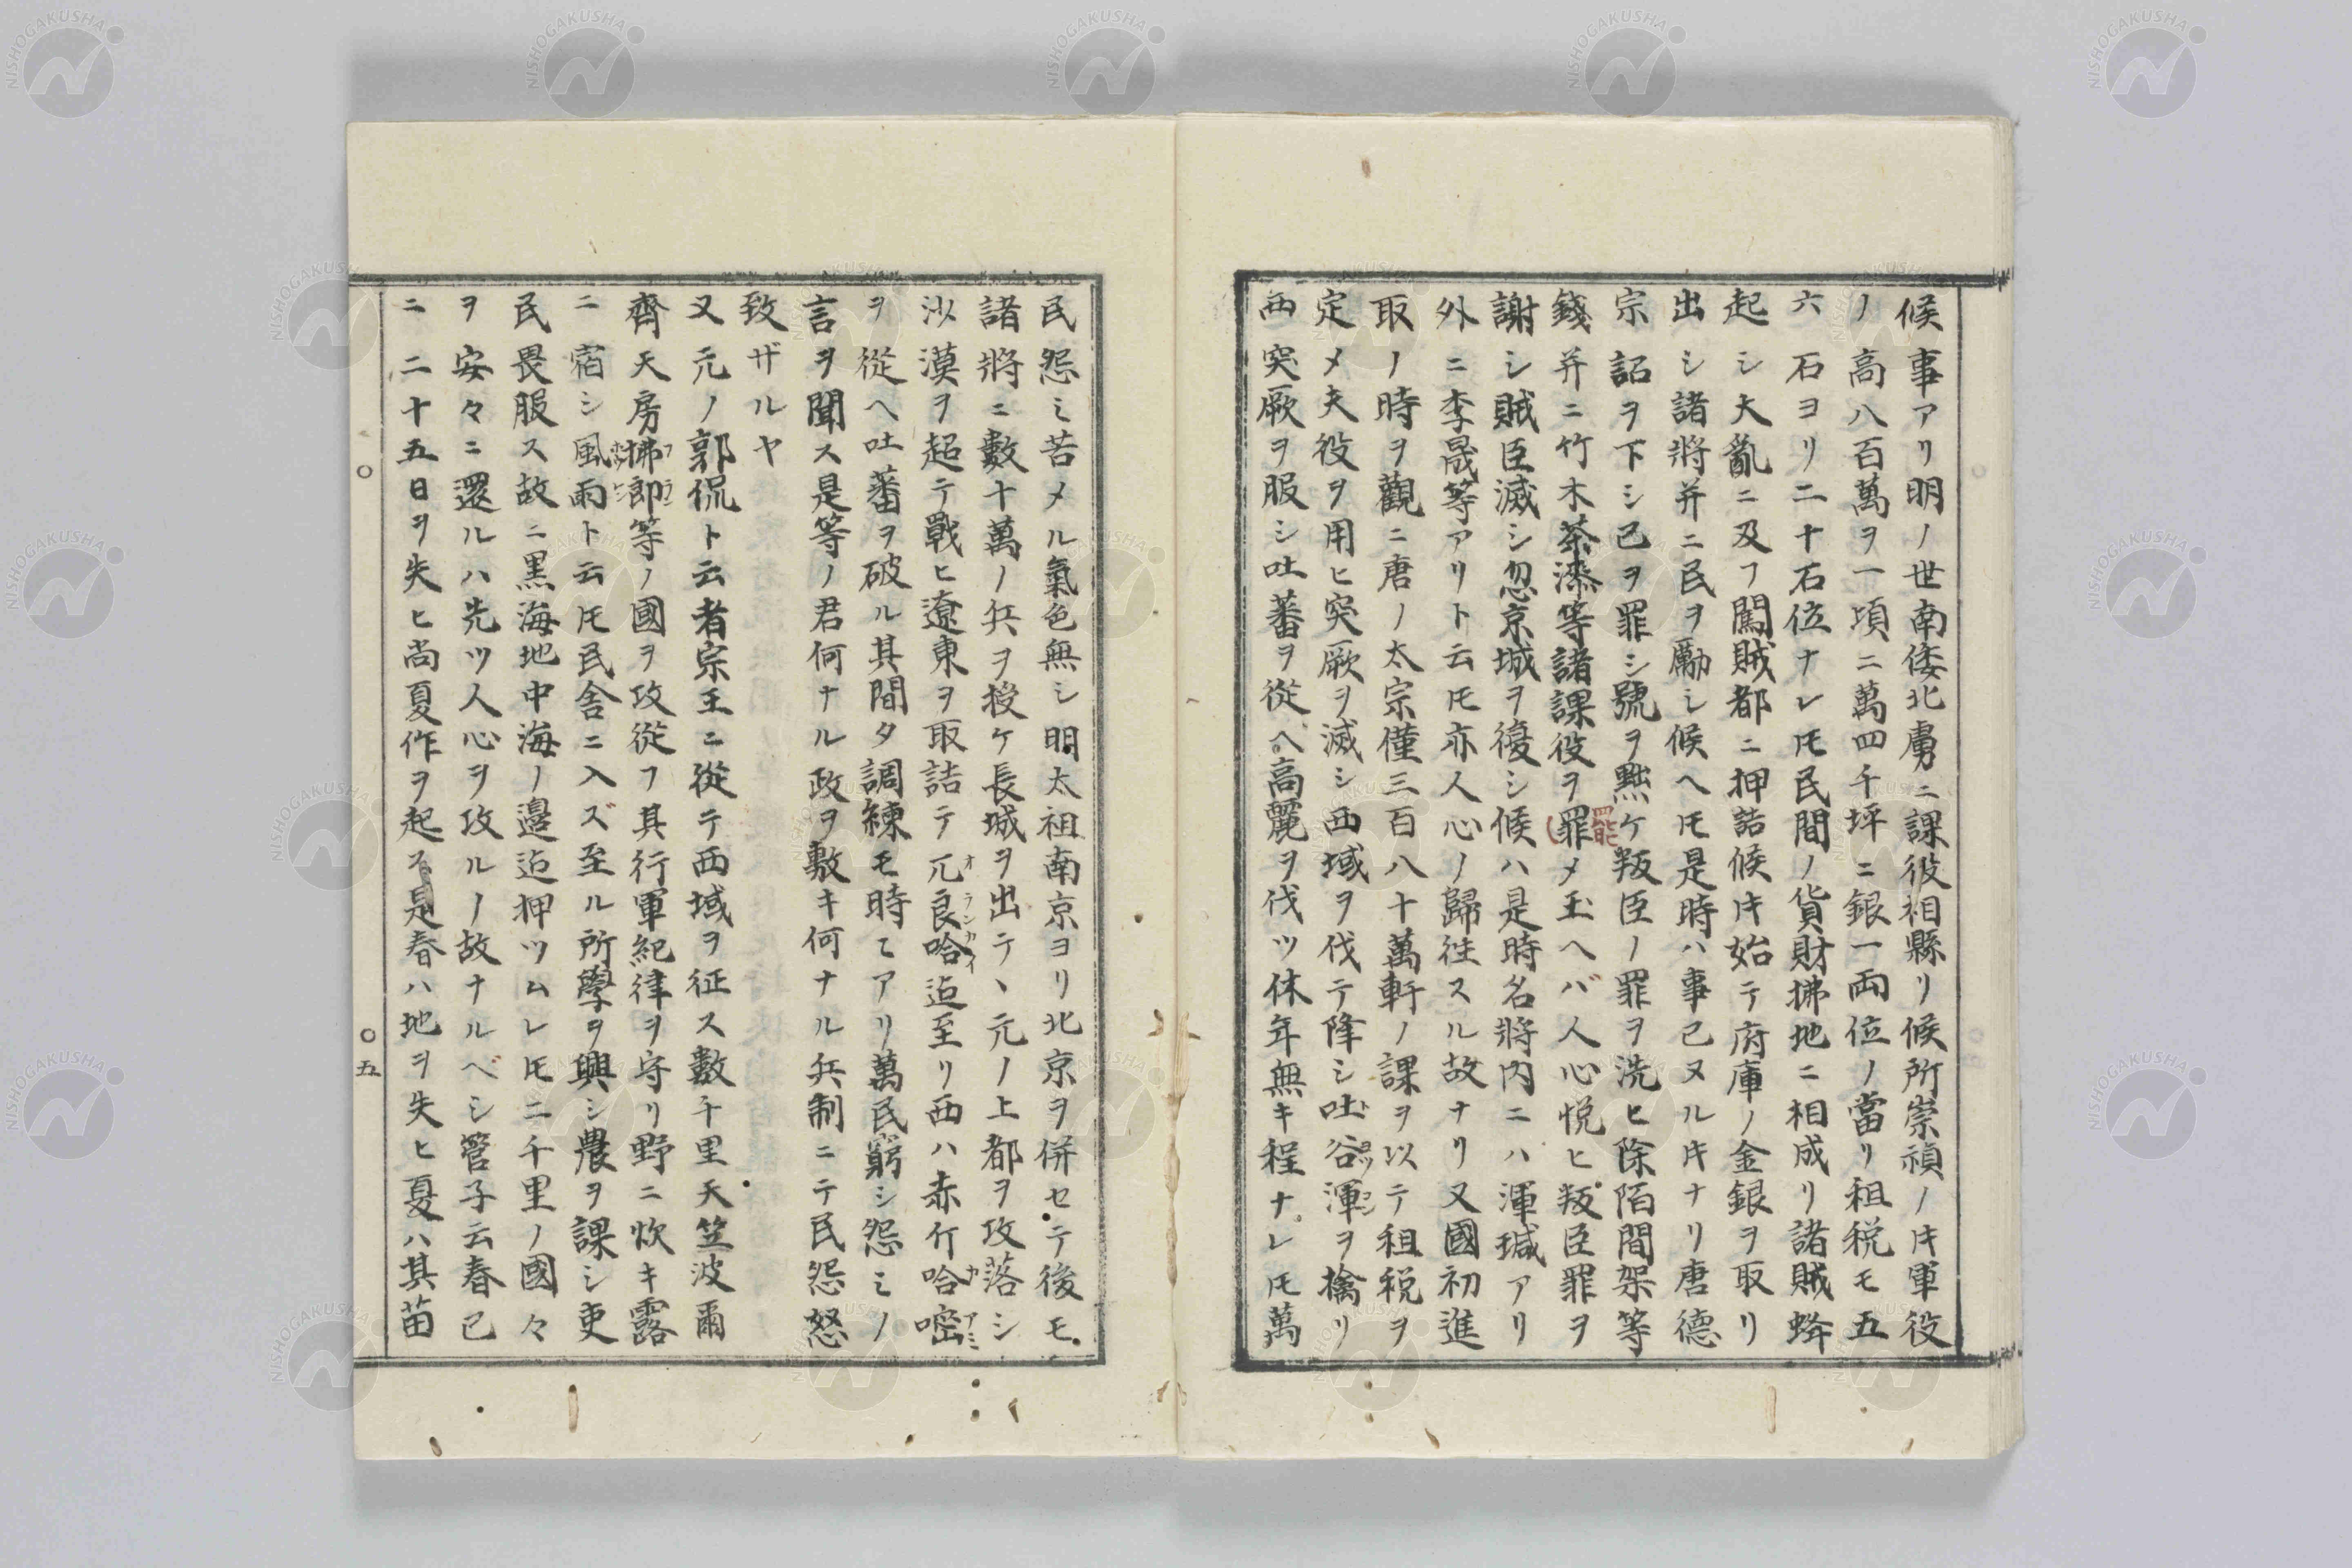 候事アリ明ノ世南倭北虜ニ課役相縣リ候所崇禎ノ𪜈軍役
ノ高八百萬ヲ一頃ニ萬四千坪ニ銀一両位ノ當リ租税モ五
六石ヨリ二十石位ナレ𪜈民間ノ貨財拂地ニ相成リ諸賊蜂
起シ大亂ニ及フ闖賊都ニ押詰候𪜈始テ府庫ノ金銀ヲ取リ
出シ諸將并ニ民ヲ勵シ候ヘ𪜈是時ハ事已ヌル𪜈ナリ唐德
宗詔ヲ下シ己ヲ罪シ號ヲ黜ケ叛臣ノ罪ヲ洗ヒ除陌間架等
錢并ニ竹木茶漆等諸課役ヲ罪メ玉ヘバ人心悦ヒ叛臣罪ヲ
罷
謝シ賊臣滅シ忽京城ヲ復シ候ハ是時名將内ニハ渾瑊アリ
外ニ李晟等アリト云𪜈亦人心ノ歸往スル故ナリ又國初進
取ノ時ヲ觀ニ唐ノ太宗僅三百八十萬軒ノ課ヲ以テ租税ヲ
定メ夫役ヲ用ヒ突厥ヲ滅シ西域ヲ伐テ降シ吐谷渾ヲ擒リ
西突厥ヲ服シ吐蕃ヲ從ヘ高麗ヲ伐ツ休年無キ程ナレ𪜈萬
民怨ミ苦メル氣色無シ明太祖南京ヨリ北京ヲ併セテ後モ
諸將ニ數十萬ノ兵ヲ授ケ長城ヲ出テヽ元ノ上都ヲ攻落シ
沙漠ヲ超テ戰ヒ遼東ヲ取詰テ兀良哈迠至リ西ハ赤斤哈密
ヲ從ヘ吐蕃ヲ破ル其間タ調練モ時〻アリ萬民窮シ怨ミノ
言ヲ聞ス是等ノ君何ナル政ヲ敷キ何ナル兵制ニテ民怨怒
致ザルヤ
又元ノ郭侃ト云者宗王ニ從テ西域ヲ征ス數千里天竺波爾
齊天房拂郎等ノ國ヲ攻從フ其行軍紀律ヲ守リ野ニ炊キ露
ニ宿シ風雨ト云𪜈民舎ニ入ズ至ル所學ヲ興シ農ヲ課シ吏
民畏服ス故ニ黒海地中海ノ邉迠押ツムレ𪜈二千里ノ國々
ヲ安々ニ還ルハ先ツ人心ヲ攻ルノ故ナルベシ管子云春已
ニ二十五日ヲ失ヒ尚夏作ヲ起ス是春ハ地ヲ失ヒ夏ハ其苗
五